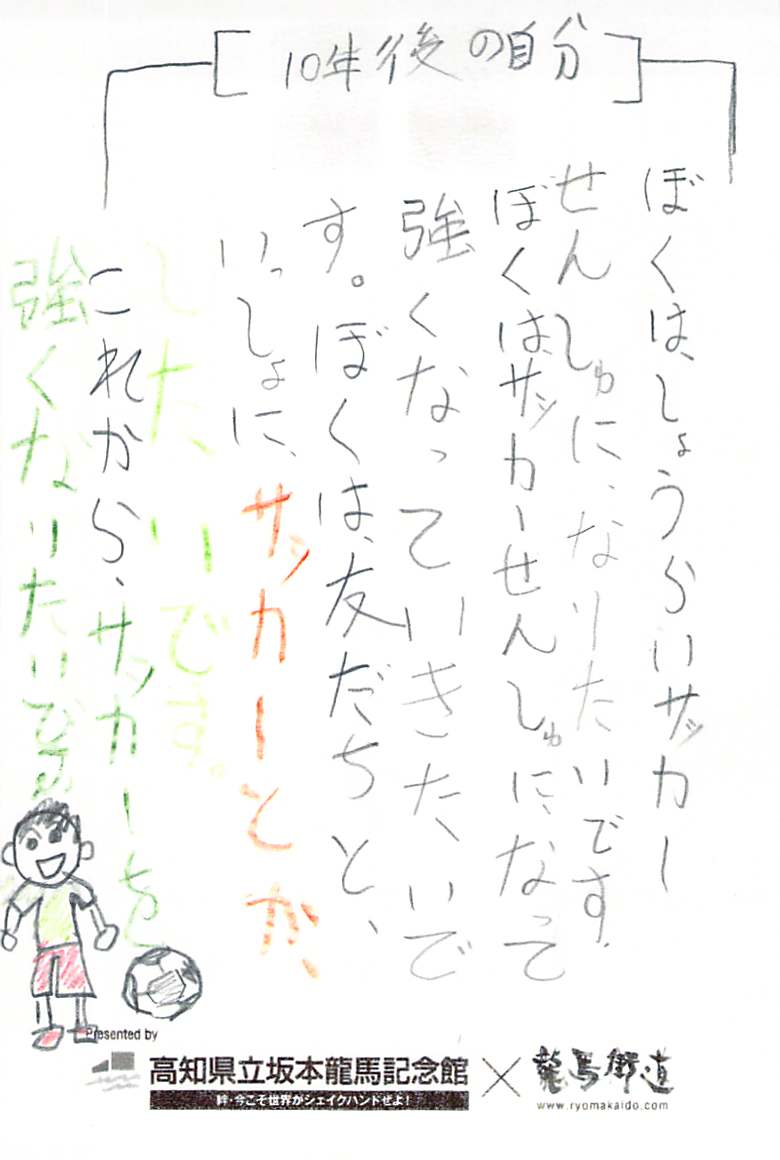 10年後の自分
ぼくは、しょうらいサッカー
せんしゅに、なりたいです。
ぼくは、サッカーせんしゅに、なって
強くなっていきたいで
す。ぼくは、友だちと、
いっしょに、サッカーとか、
したいです。
これから、サッカーを
強くなりたいです
Presented by
高知県立坂本龍馬記念館×龍馬街道
絆・今こそ世界がシェイクハンドせよ!
www.ryomakaido.com